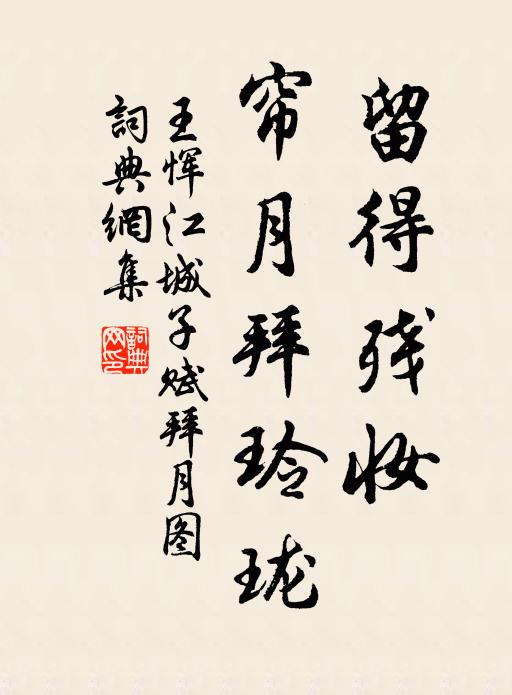 留得残妆
帘月拜玲珑
王恽江城子赋拜月图
詞典網集
詞典网印